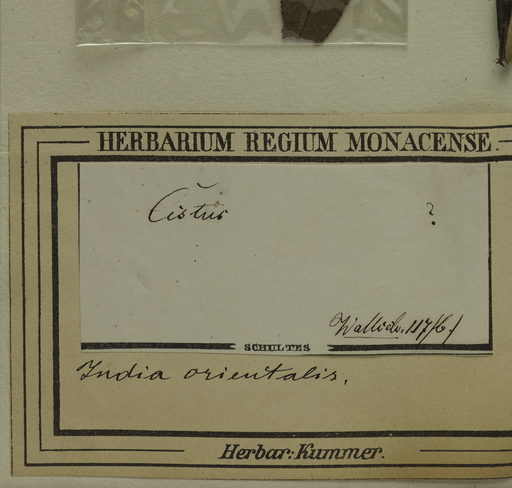 HERBARIUM REGIUM MONACENSE.
Cistus ?
Wallich. 117/6.)
SCHULTES
India orientalis.
Herbar: Kummer.